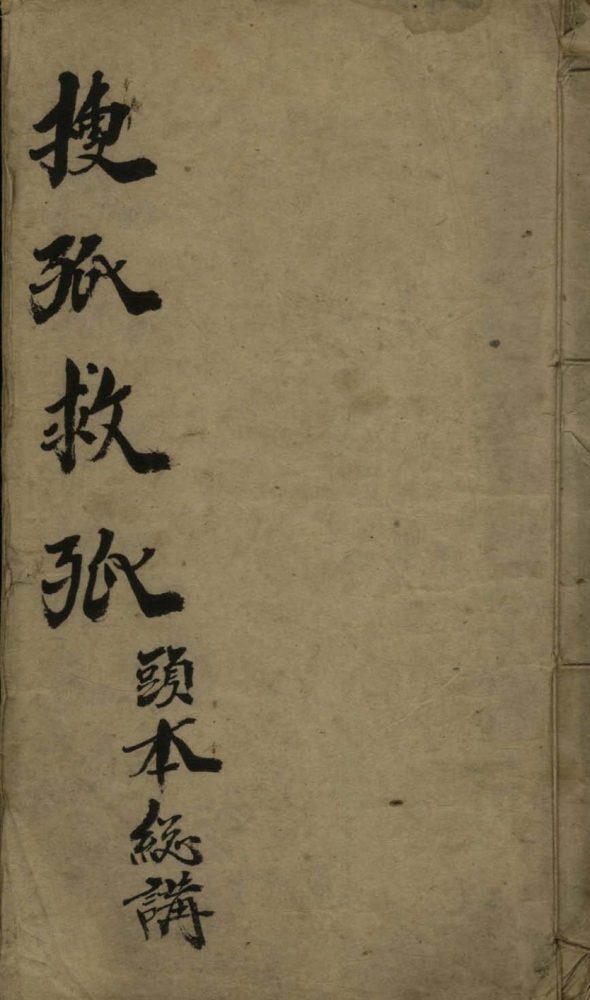 搜孤救孤
頭本総講